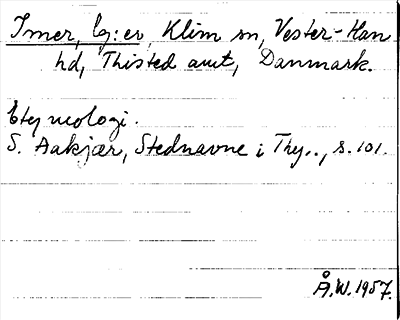 Imer, lg:er, Klim sn, Vester-Han
hd, Thisted amt, Danmark.
Etymologi.
S. Aakjær, Stednavne i Thy.., s. 101.
Å.W. 1957.